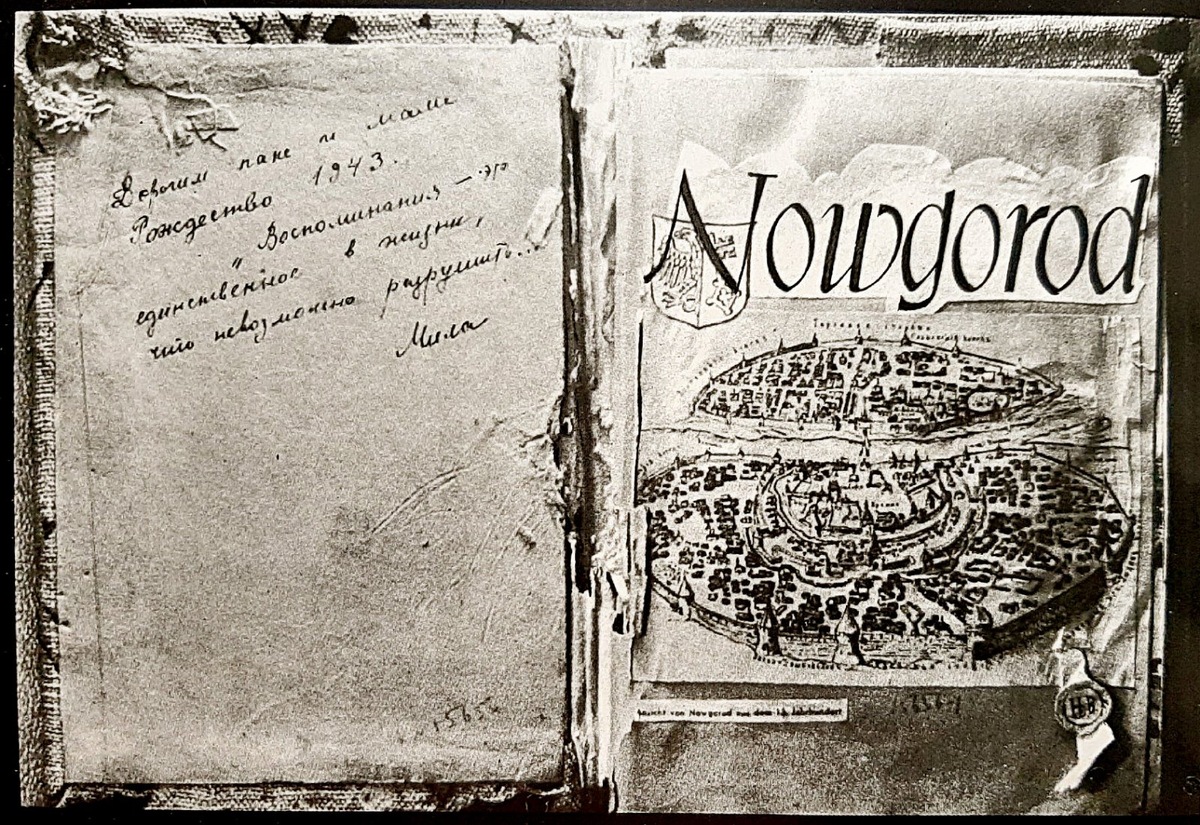 Дорогим папе и маме
Рождество 1943.
„ Воспоминания — это
единственное в жизни,
что невозможно разрушить...
Мила
Nowgorod
Торговая сторона
Кремль
Ansicht von Nowgorod aus dem Jahrhundert
HB